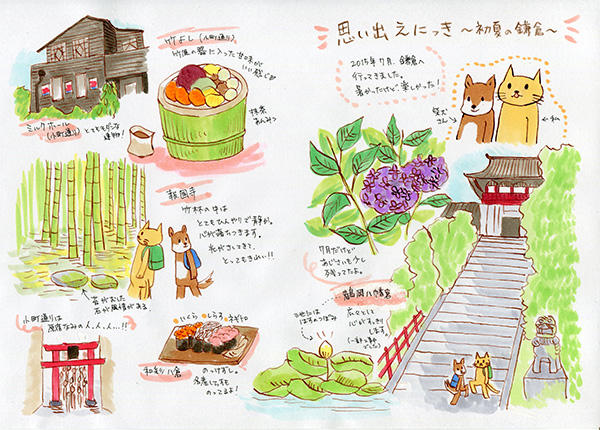 思い出えにっき 〜初夏の鎌倉〜
2015年7月、鎌倉へ
行ってきました。
暑かったけど楽しかった！
柴犬
さん
私
7月だけど
あじさいも少し
残ってたよ。
鶴岡八幡宮
広々として
心がすっきり
します。
池には
はすのつぼみ
竹よし(小町通り)
竹風の器に入った甘味が
いい感じ
抹茶
あんみつ
ミルクホール
(小町通り)
とてもモダンな
建物！
報国寺
竹林の中は
とてもひんやりで静か。
心が落ちつきます。
光がさしてきて、
とってもきれい!!
苔がむした
石が風情がある
小町通りは
原宿なみの人、人、人…!!
いくら
しらす
ネギトロ
和彩 八倉
のっけずし。
名産しらすも
のってるよ！